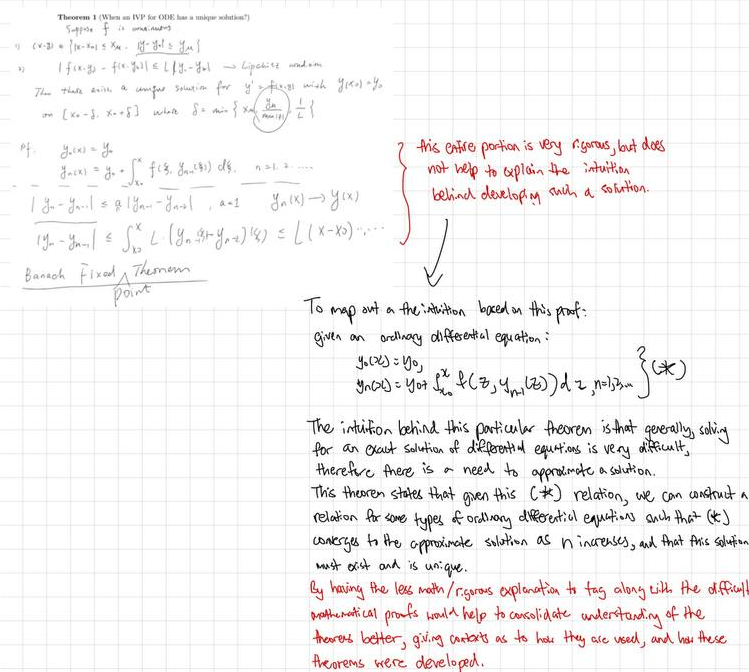 Theorem 1 (When an IVP for ODE has a unique solution?)
Suppose f is continuous
1) (x,y) ∈ {|x-x₀| ≤ x_M, |y-y₀| ≤ y_M}
2) |f(x,y₁) - f(x,y₂)| ≤ L|y₁-y₂| → Lipchitz condition
Then there exists a unique solution for y' = f(x,y) with y(x₀)=y₀
on [x₀-δ, x₀+δ] where δ = min{x_M, y_M/max|f|, 1/L}
Pf. y₀(x) = y₀
yₙ(x) = y₀ + ∫ₓ₀ˣ f(ξ, yₙ₋₁(ξ)) dξ, n=1,2,....
|yₙ-yₙ₋₁| ≤ a|yₙ₋₁-yₙ₋₂|, a<1 yₙ(x) → y(x)
|yₙ-yₙ₋₁| ≤ ∫ₓ₀ˣ L·(yₙ₋₁-yₙ₋₂)(ξ) ≤ L(x-x₀)·....
Banach Fixed point Theorem
this entire portion is very rigorous, but does
not help to explain the intuition
behind developing such a solution.
To map out a the intuition based on this proof:
given an ordinary differential equation:
y₀(x) = y₀,
yₙ(x) = y₀ + ∫ₓ₀ˣ f(z, yₙ₋₁(z)) dz, n=1,2,... } (*)
The intuition behind this particular theorem is that generally, solving
for an exact solution of differential equations is very difficult,
therefore there is a need to approximate a solution.
This theorem states that given this (*) relation, we can construct a
relation for some types of ordinary differential equations such that (*)
converges to the approximate solution as n increases, and that this solution
must exist and is unique.
By having the less math/rigorous explanation to tag along with the difficult
mathematical proofs would help to consolidate understanding of the
theorems better, giving contexts as to how they are used, and how these
theorems were developed.